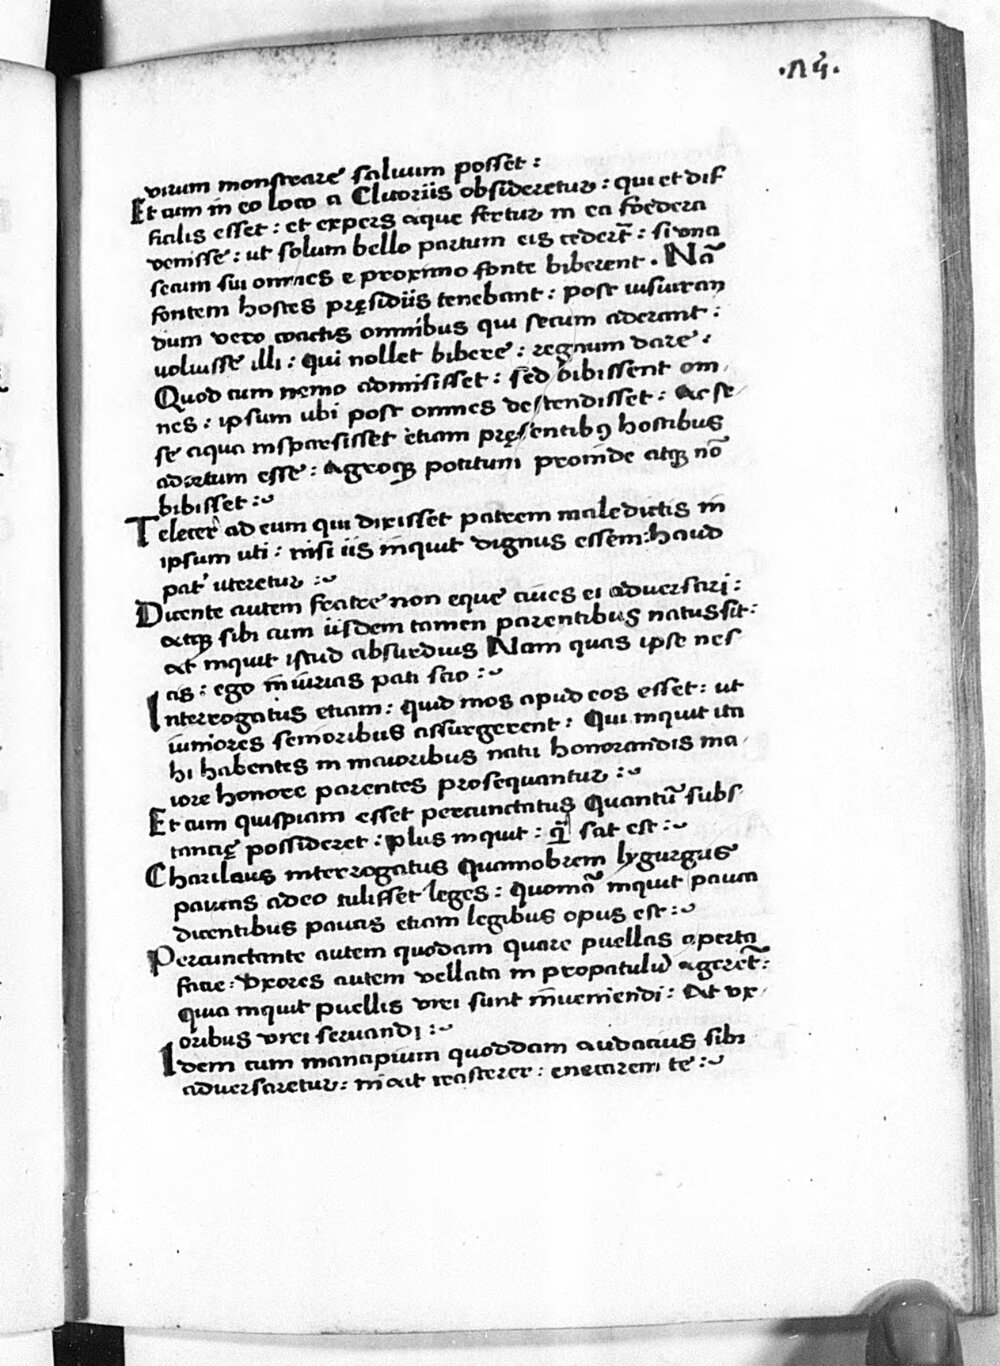 ·n4·
virum monstrare saluum posset :
Et cum in eo loco a Clitoriis obsideretur : qui et dif
ficilis esset : et expers aque fertur in ea foedera
venisse : ut solum bello partum eis cederet̄ : si una
secum sui omnes e proximo fonte biberent . Nā
fontem hostes pręsidiis tenebant : post iusiuran
dum vero coactis omnibus qui secum aderant :
uoluisse illi : qui nollet bibere : regnum dare :
Quod cum nemo admisisset : sed bibissent om
nes : ipsum ubi post omnes descendisset : Ac se
se aqua insparsisset etiam pręsentibꝯ hostibus
adortum esse : agroqꝫ potitum proinde atqꝫ nō
bibisset :~
Telecer' ad eum qui dixisset patrem maledictis in
ipsum uti : nisi iis inquit dignus essem : haud
pat' uteretur :~
Dicente autem fratre non eque ciues ei aduersari :
atqꝫ sibi cum iisdem tamen parentibus natus sit :
at inquit istud absurdius Nam quas ipse nes
cis : ego iniurias pati scio :~
Interrogatus etiam : quid mos apud eos esset : ut
iuniores senioribus assurgerent : Qui inquit ita
hi habentes in maioribus natu honorandis ma
iore honore parentes prosequantur :~
Et cum quispiam esset percunctatus Quantū subs
tancię possideret : plus inquit : q̄ sat est :~
Charilaus interrogatus Quamobrem lygurgus
paucas adeo tulisset leges : quoniā inquit pauca
dicentibus paucis etiam legibus opus est :~
Percunctante autem quodam quare puellas aperta
facie : vxores autem vellata in propatulū ageret̄ :
quia inquit puellis viri sunt inueniendi : At vx
oribus viri seruandi :~
Idem cum mancipium quoddam audacius sibi
aduersaretur : ni ait irasterer : enecarem te :~